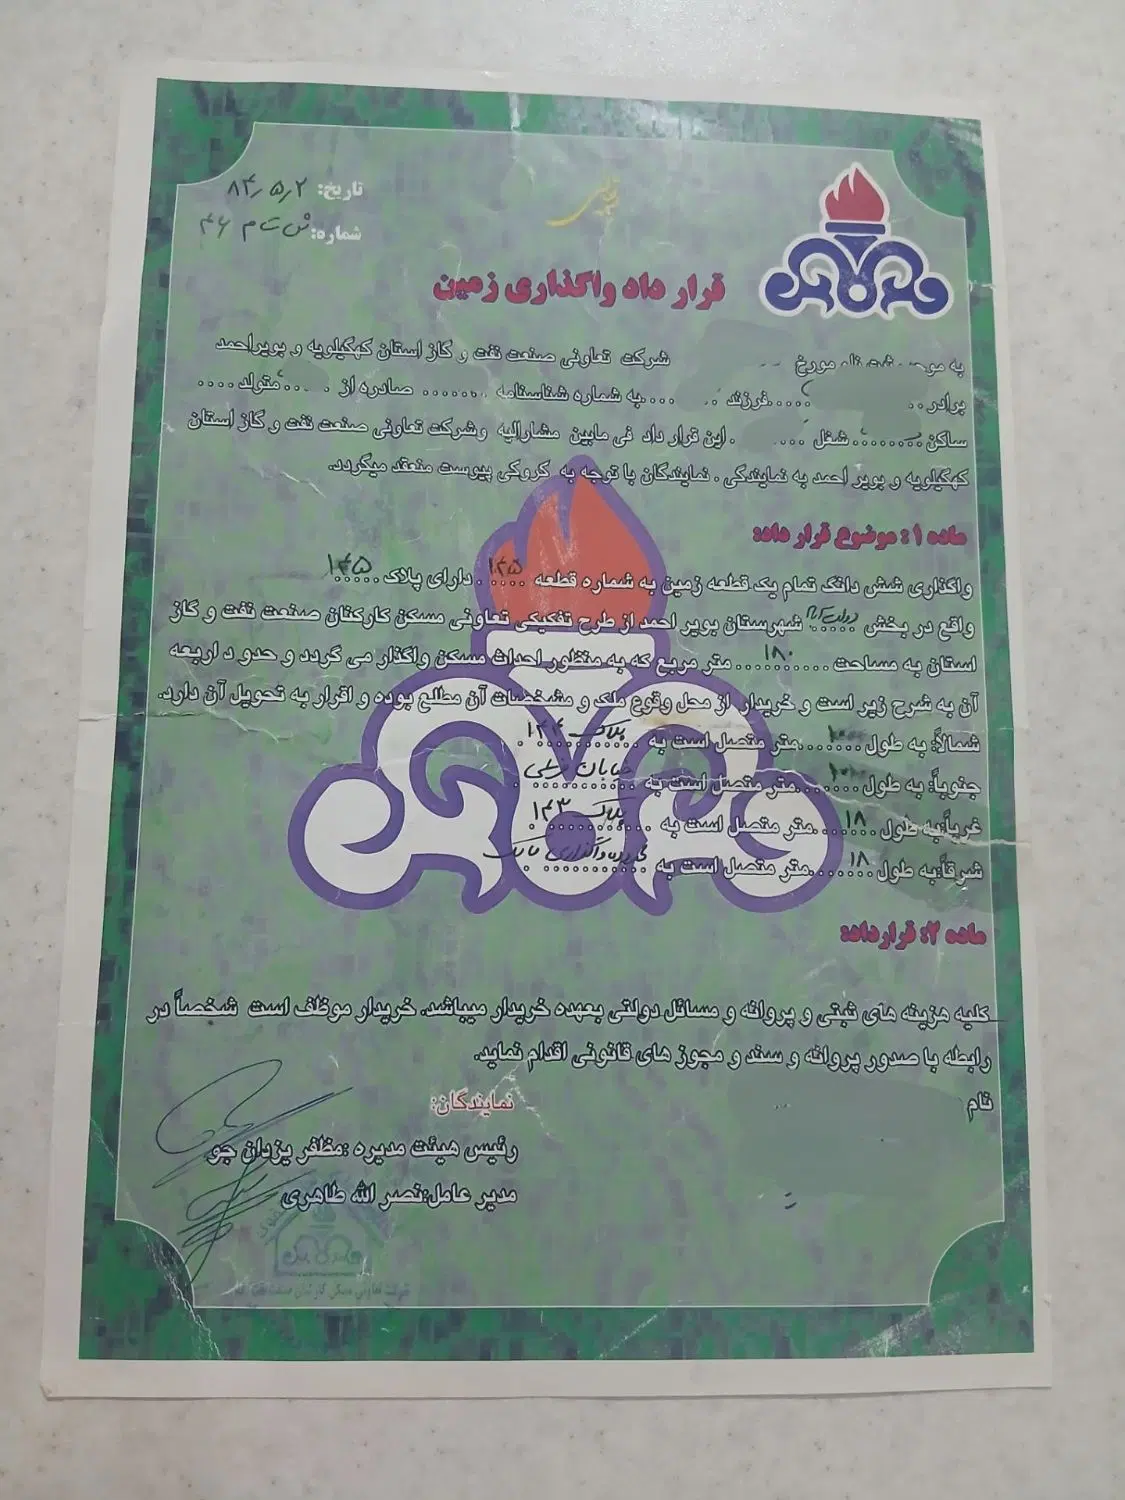 تاریخ: ۸۴/۵/۲
شماره: ش ت م ۴۶
قرار داد واگذاری زمین
به مورخ شرکت تعاونی صنعت نفت و گاز استان کهگیلویه و بویراحمد
برادر.. .....فرزند ....به شماره شناسنامه ....... صادره از ....متولد ....
ساکن........ شغل .... .این قرار داد فی مابین مشارالیه وشرکت تعاونی صنعت نفت و گاز استان
کهگیلویه و بویر احمد به نمایندگی . نمایندگان با توجه به کروکی پیوست منعقد میگردد.
ماده ۱: موضوع قرار داد:
واگذاری شش دانگ تمام یک قطعه زمین به شماره قطعه ۱۴۵ .دارای پلاک ۱۴۵
واقع در بخش شهرستان بویر احمد از طرح تفکیکی تعاونی مسکن کارکنان صنعت نفت و گاز
استان به مساحت ۱۸۰ متر مربع که به منظور احداث مسکن واگذار می گردد و حدو د اربعه
آن به شرح زیر است و خریدار از محل وقوع ملک و مشخصات آن مطلع بوده و اقرار به تحویل آن دارد.
شمالاً: به طول ۱۰ متر متصل است به پلاک ۱۴۴
جنوباً: به طول ۱۰ متر متصل است به خیابان فرعی
غرباً:به طول ۱۸ متر متصل است به پلاک ۱۴۳
شرقاً:به طول ۱۸ متر متصل است به واگذاری
ماده ۲: قرارداد:
کلیه هزینه های ثبتی و پروانه و مسائل دولتی بعهده خریدار میباشد. خریدار موظف است شخصاً در
رابطه با صدور پروانه و سند و مجوز های قانونی اقدام نماید.
نام
نمایندگان:
رئیس هیئت مدیره :مظفر یزدان جو
مدیر عامل:نصر الله طاهری
شرکت تعاونی مسکن کارکنان صنعت نفت